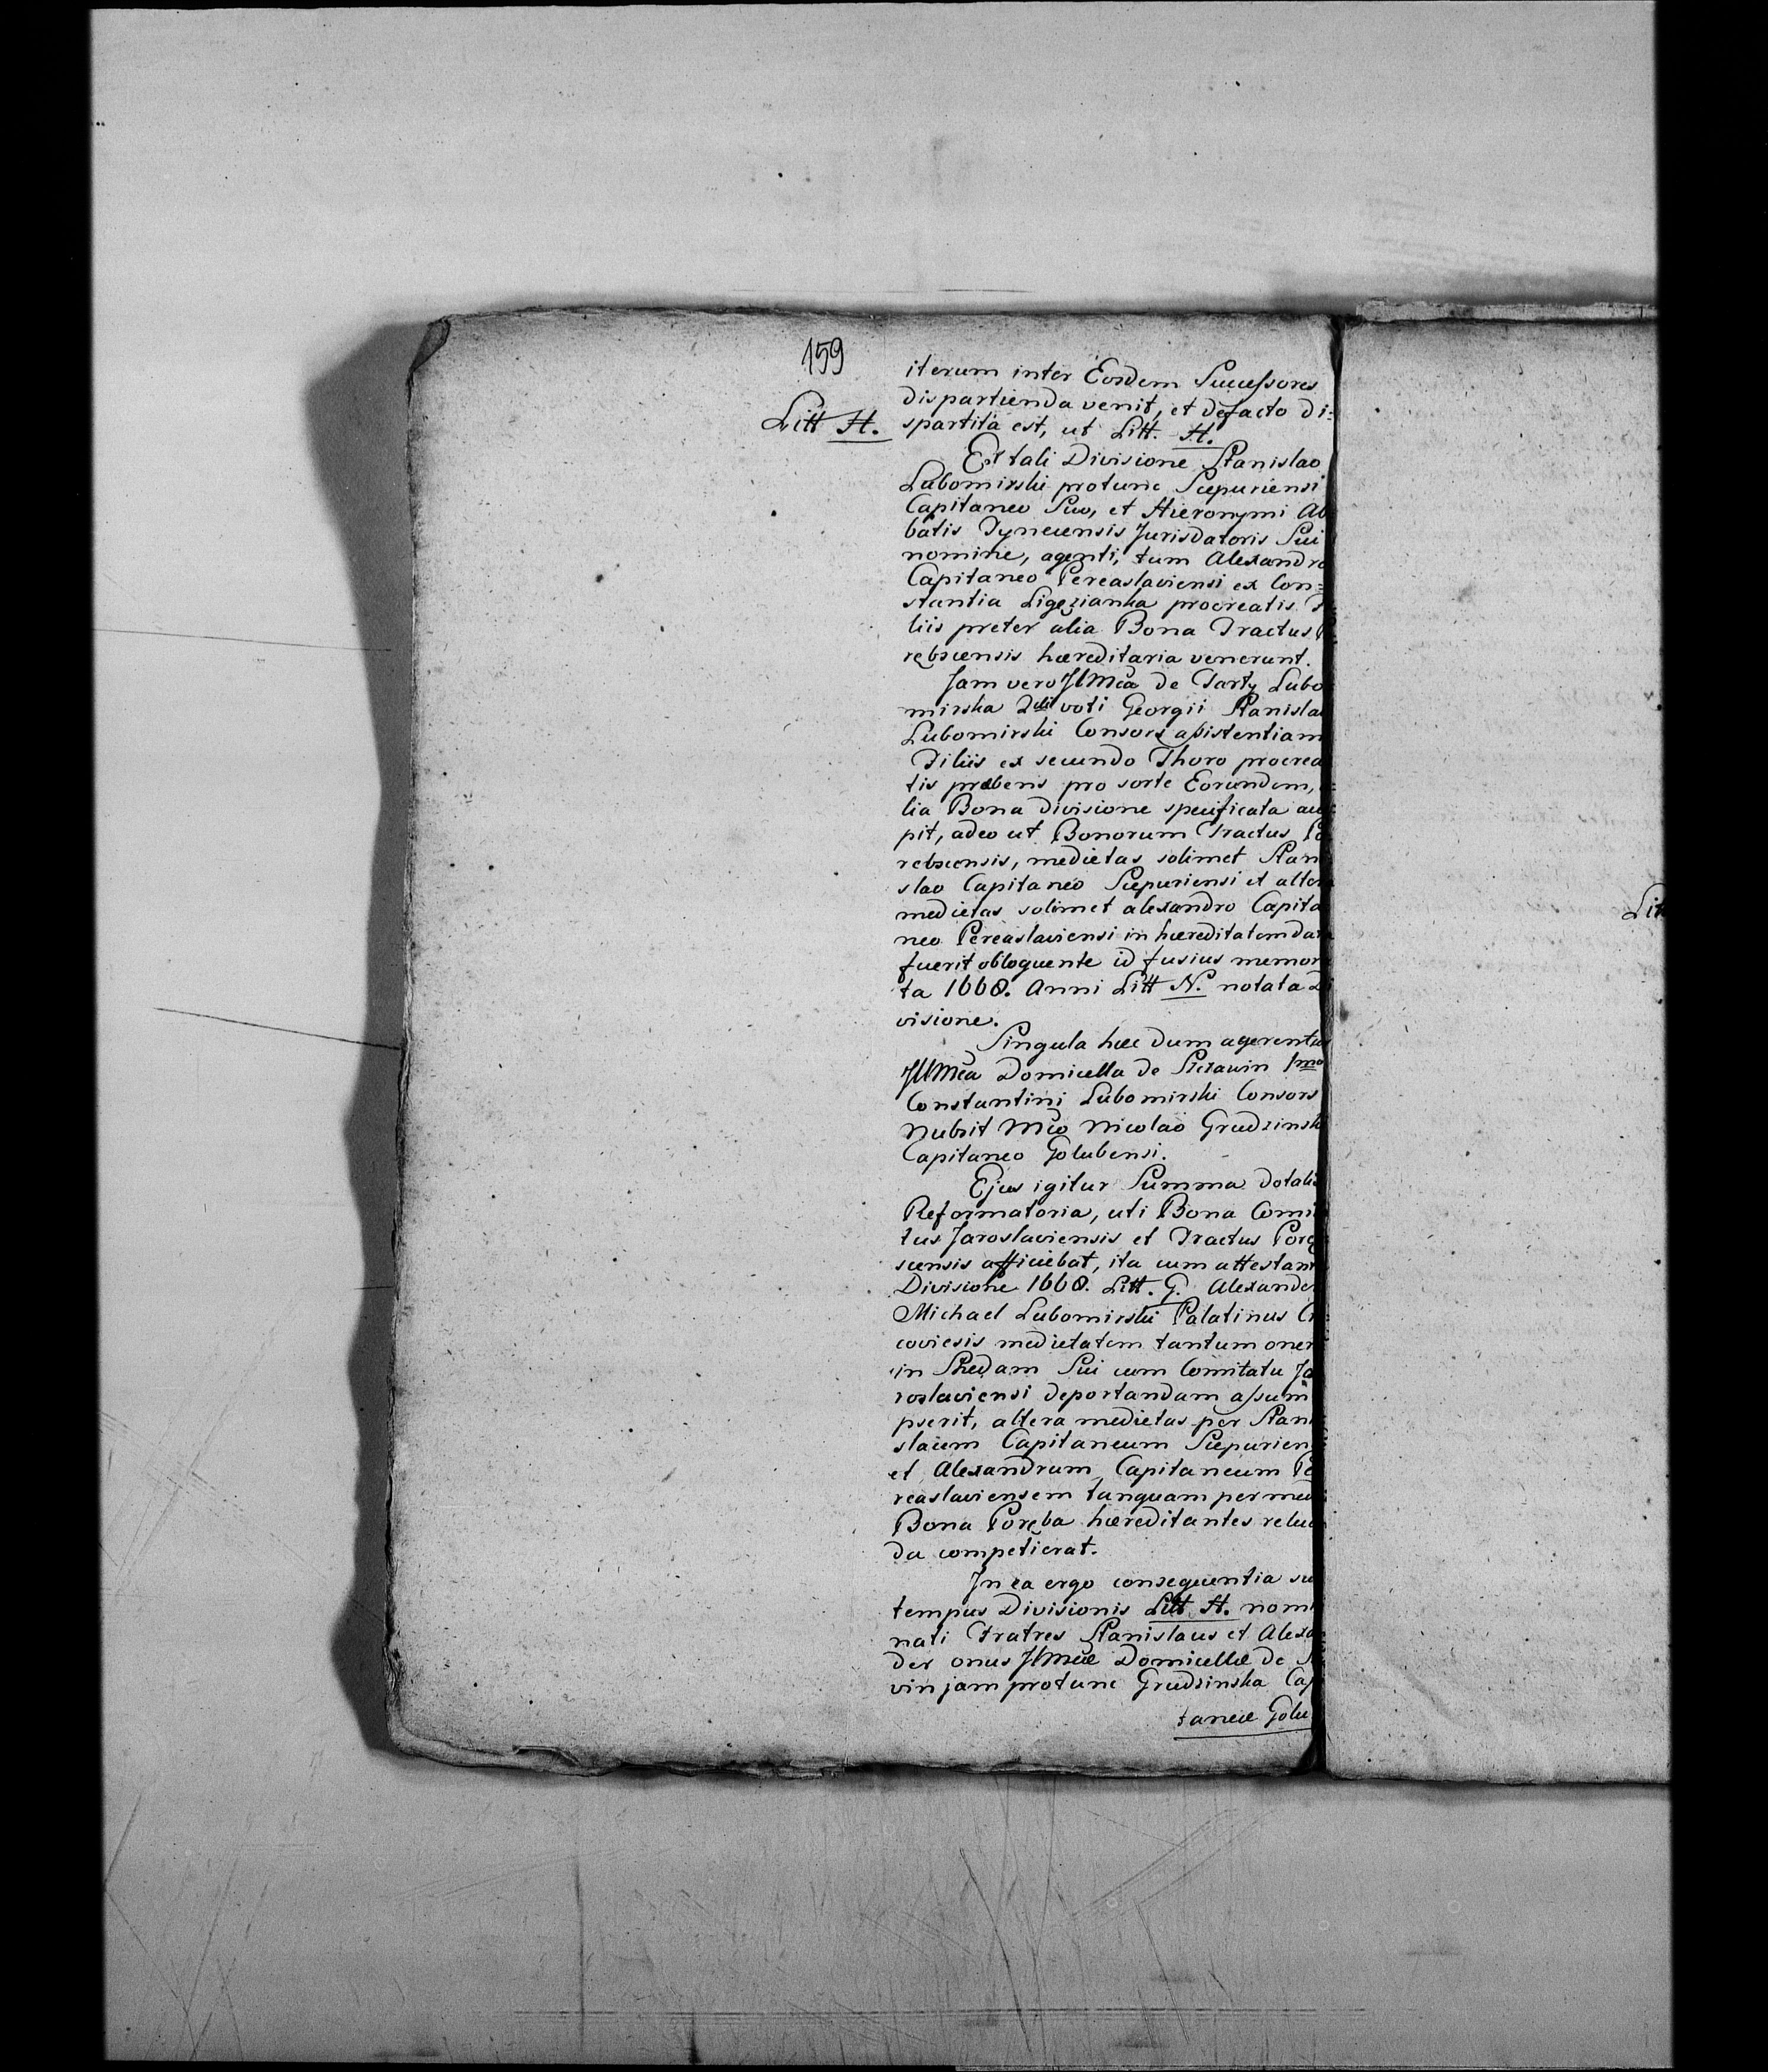 159
iterum inter Eosdem Successores
dispartienda venit, et defacto di=
Litt H. spartita est, ut Litt. H.
Ex tali Divisione Stanislao
Lubomirski protunc Scepuriensi
Capitaneo Suo, et Hieronymi Ab
batis Tynecensis Jurisdatoris Sui
nomine, agenti, tum Alexandro
Capitaneo Pereaslaviensi ex Con=
stantia Ligęzianka procreatis
liis preter alia Bona Tractus
rębscensis hæreditaria venerunt.
Jam vero Illmca de Tarty Lubo
mirska 2di voti Georgii Stanisla
Lubomirski Consors assistentiam
Filiis ex secundo Thoro procrea
tis præbens pro sorte Eorundem,
lia Bona divisione specificata acc
pit, adeo ut Bonorum Tractus Po
rebscensis, medietas solimet Stan
slao Capitaneo Scepuriensi et alter
medietas solimet alexandro Capita
neo Pereaslaviensi in hæreditatem dat
fuerit obloquente id fusius memor
ta 1668. Anni Litt N. notata Di
visione.
Singula hæc dum agerentur
Illmca Domicella de 1mo
Constantini Lubomirski Consors
Nubsit Mco Nicolao Grudzinsk
Capitaneo Golubensi.
Ejus igitur Summa dotalis
Reformatoria, uti Bona Comi
tus Jaroslaviensis et Tractus Porę
scensis afficiebat, ita cum attestant
Divisione 1668. Litt. G. Alexander
Michael Lubomirski Palatinus C
coviesis medietatem tantum oner
in Shedam Sui cum Comitatu Ja
roslaviensi deportandam assum
pserit, altera medietas per Stan
slaum Capitaneum Scepurien
et Alexandrum Capitaneum Pe
reaslaviensem tanquam per med
Bona Poręba hæreditantes relu
da competierat.
In ea ergo consequentia su
tempus Divisionis Litt H. nomi
nati Fratres Stanislaus et Alexa
der onus Illmcæ Domicellæ de
vin jam protunc Grudzinska Cap
taneæ Golu
Lit